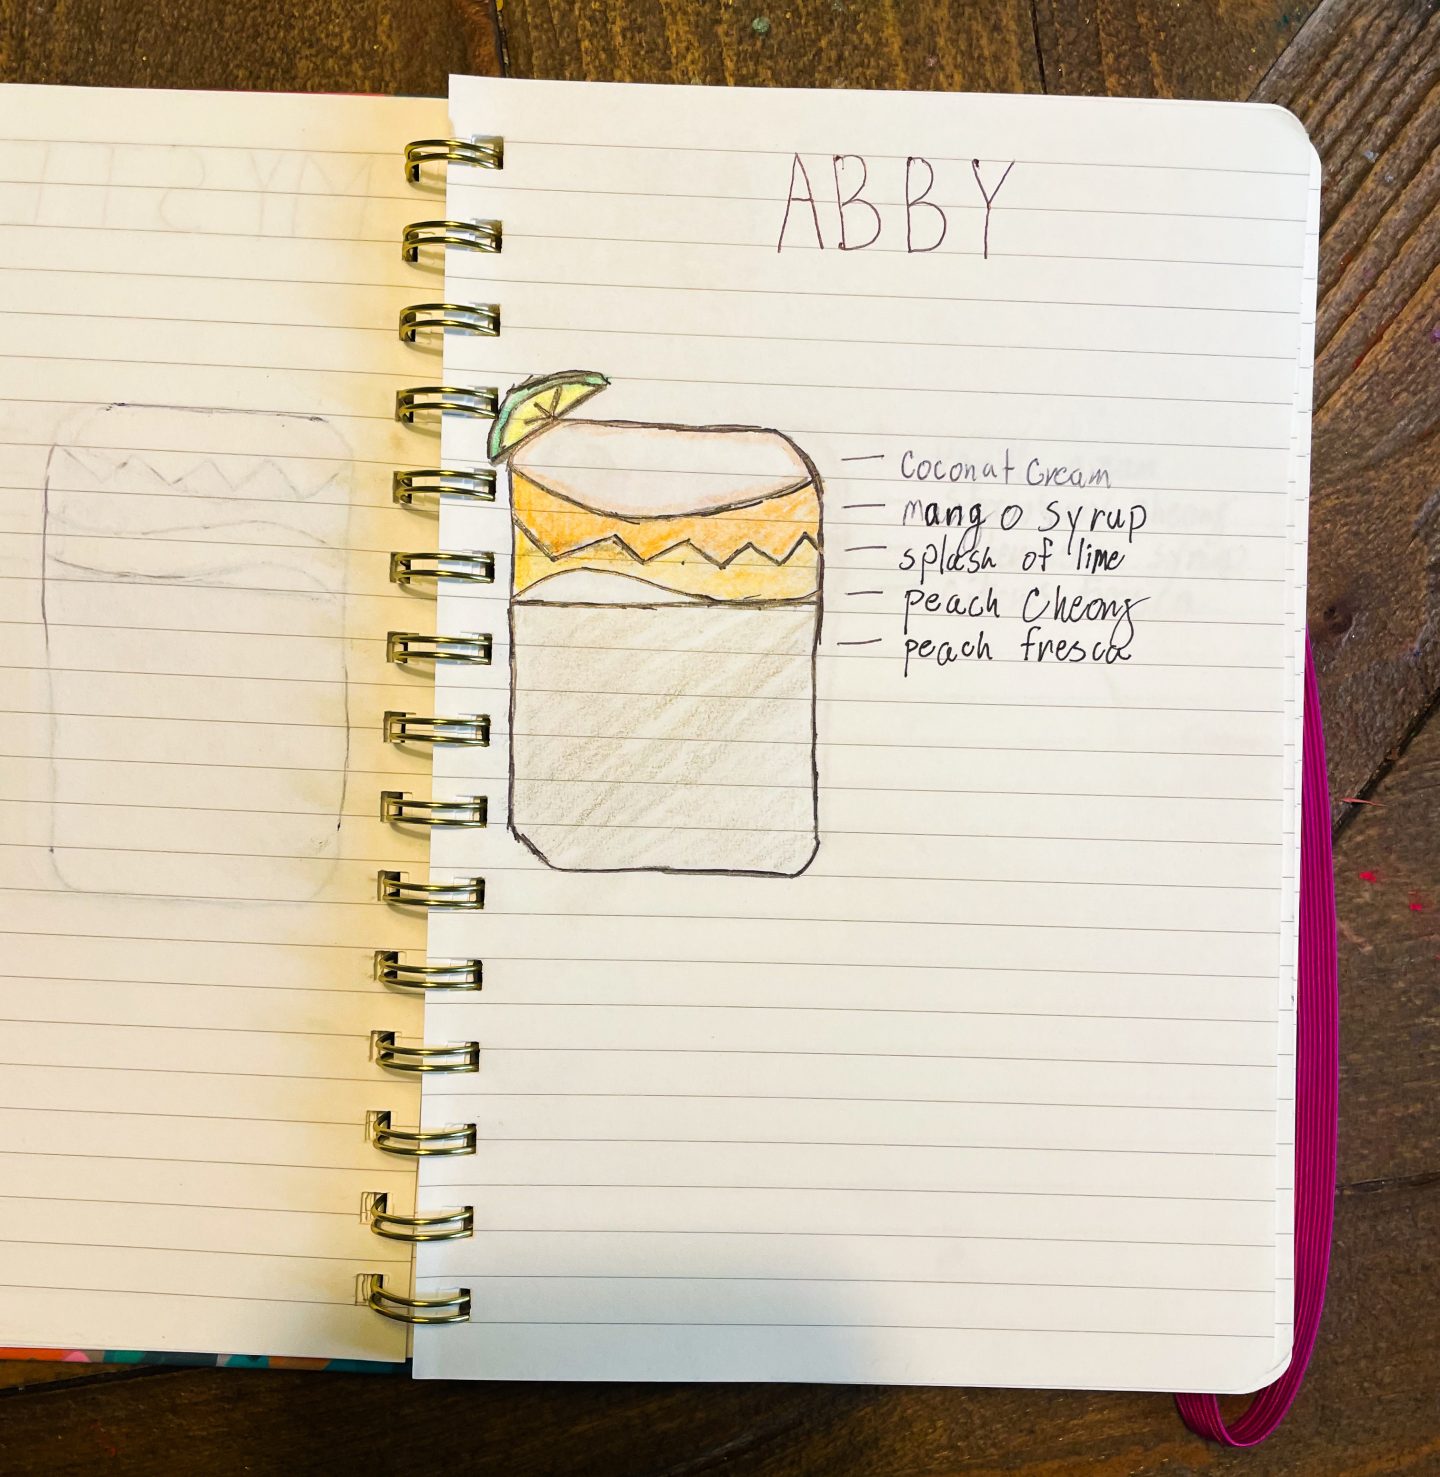 ABBY
Coconut Cream
mango syrup
splash of lime
peach Cheong
peach fresca